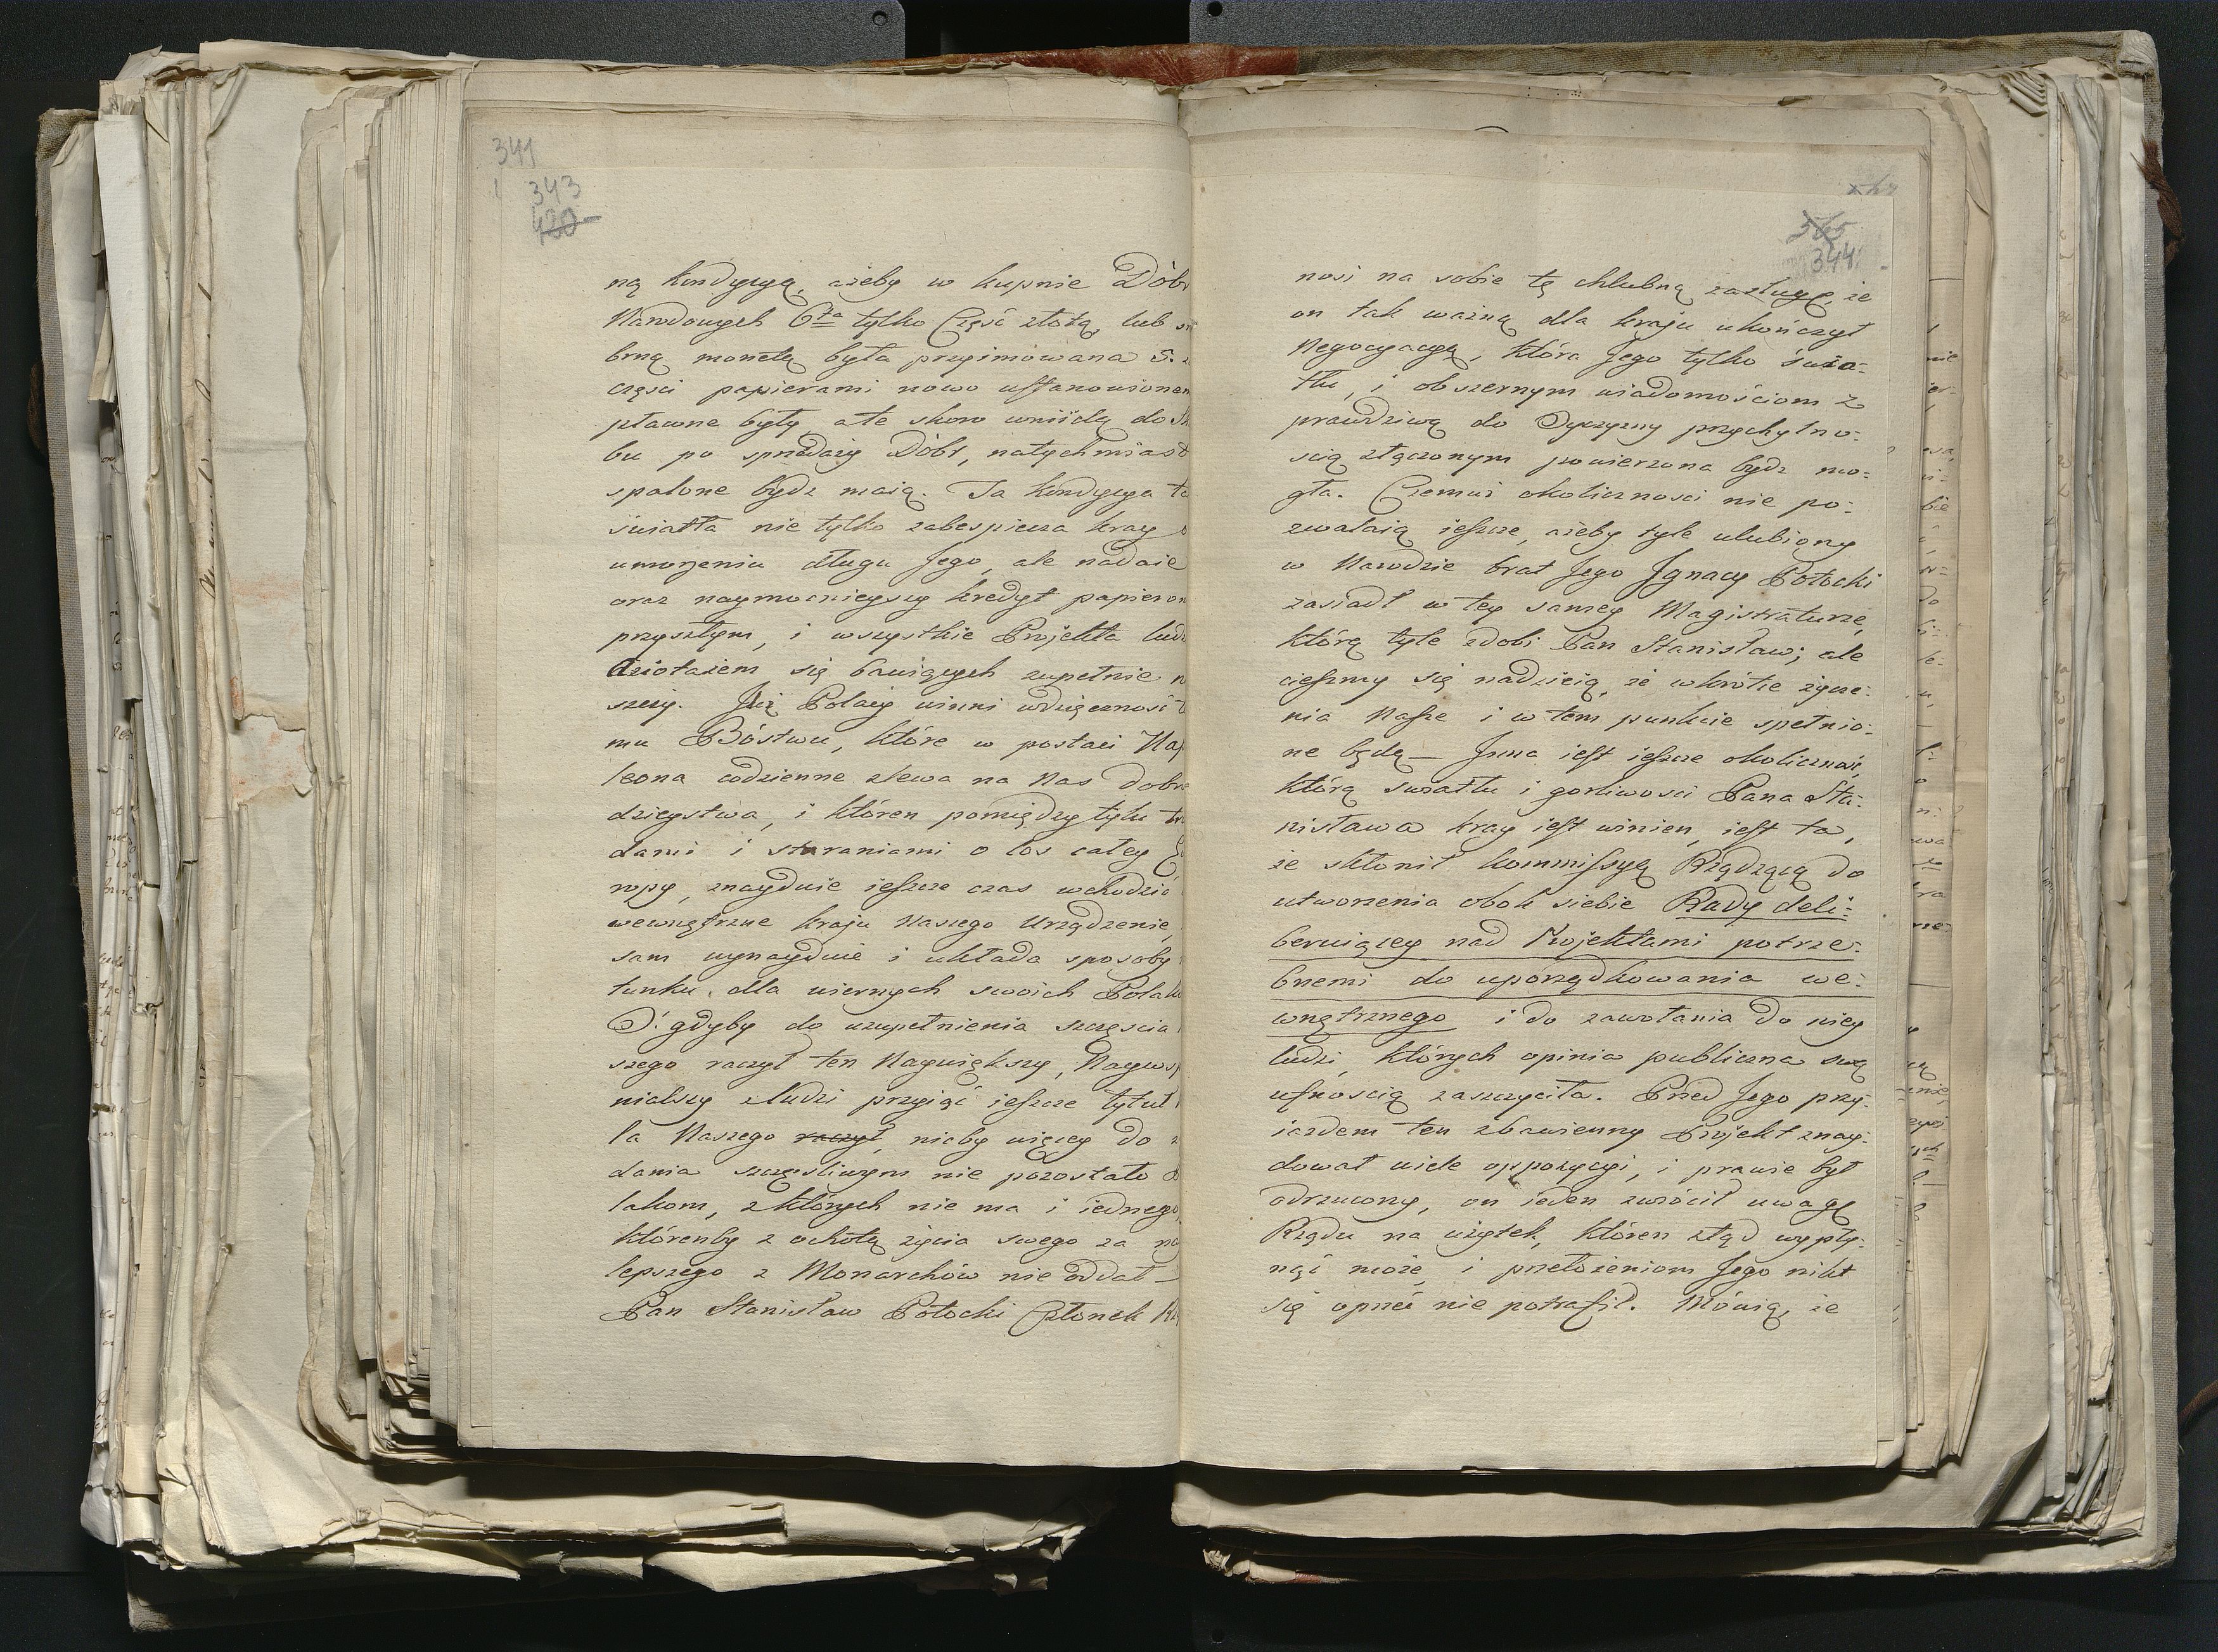 341
343
420
ną kondycyą, ażeby w kupnie Dóbr
Narodowych 6ta tylko Część złotą, lub
brną monetą była przyimowana 5.
części papierami nowo ustanowionem
pławne były, ale skoro wniidą do
bu po sprzedaży Dóbr, natychmiast
spalone bydz maią. Ta kondycya
światła nie tylko zabespiecza kray
umorzeniu długu Jego, ale nadaie
oraz naymocnieyszy kredyt papierom
przyszłym, i wszystkie Projekta
Aziotażem się bawiących zupełnie
szczy. Ileż Polacy winni wdzięczność
mu Bóstwu, które w postaci Nap
leona codzienne zlewa na Nas dobro
dzieystwa, i któren pomiędzy tylu
dami i staraniami o los całey
ropy, znayduie ieszcze czas wchodzić
wewnętrzne kraju Naszego Urządzenie,
sam wynayduie i układa sposoby
tunku dla wiernych swoich Polak
O! gdyby do uzupełnienia szczęścia
szego raczył ten Naywiększy, Nayws
nialszy z Ludzi przyiąć ieszcze tytuł
la Naszego raczył, nicby więcey do
dania szczęśliwym nie pozostało
lakom, z których nie ma i iednego,
którenby z ochotą życia swego za
lepszego z Monarchów nie oddał –
Pan Stanisław Potocki Członek
565
344
nosi na sobie tę chlubną zasługę, że
on tak ważną dla kraju ukończył
Negocyacyą, która Jego tylko świa=
tłu, i obszernym wiadomościom z
prawdziwą do Oyczyzny przychylno=
scią złączonym powierzona bydz mo=
gła. Czemuż okoliczności nie po=
zwalaią ieszcze, ażeby tyle ulubiony
w Narodzie brat Jego Jgnacy Potocki
zasiadł w tey samey Magistraturze,
którą tyle zdobi Pan Stanisław; ale
cieszmy się nadzieią, że wkrótce życze=
nia Nasze i w tem punkcie spełnio=
ne będą – Jnna iest ieszcze okoliczność,
którą swiatłu i gorliwosci Pana Sta=
nisława kray iest winien, iest ta,
że skłonił kommissyą Rządzącą do
utworzenia obok siebie Rady deli=
beruiącey nad Projektami potrze=
bnemi do uporządkowania we=
wnętrznego i do zawołania do niey
ludzi, których opinia publiczna swą
ufnoscią zaszczyciła. Przed Jego przy=
iazdem ten zbawienny Projekt znay=
dował wiele oppozycyi, i prawie był
odrzucony, on ieden zwrócił uwagę
Rządu na użytek, któren ztąd wypły=
nąć może, i przełożeniom Jego nikt
się oprzeć nie potrafił. Mówią, że